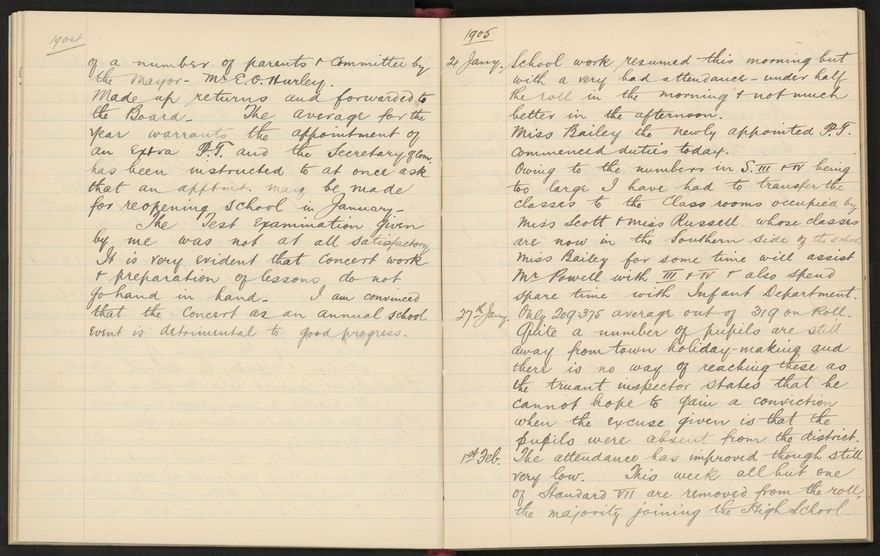 1904
of a number of parents & Committee by
the Mayor - Mr E. O. Hurley.
Made up returns and forwarded to
the Board - The average for the
year warrants the appointment of
an extra P.T. and the Secretary of Com.
has been instructed to at once ask
that an apptmt. may be made
for reopening school in January -
The Test Examination given
by me was not at all satisfactory
It is very evident that concert work
& preparation of lessons do not
go hand in hand - I am convinced
that the Concert as an annual school
event is detrimental to good progress.
1905
24 Jany. School work resumed this morning but
with a very bad attendance - under half
the roll in the morning & not much
better in the afternoon.
Miss Bailey the newly appointed P.T.
commenced duties today.
Owing to the numbers in S. III & IV being
too large I have had to transfer the
classes to the Class rooms occupied by
Miss Scott & Miss Russell whose classes
are now in the Southern side of the school
Miss Bailey for some time will assist
Mr Powell with III & IV & also spend
spare time with Infant Department.
27th Jany. Only 209.375 average out of 319 on Roll.
Quite a number of pupils are still
away from town holiday-making and
there is no way of reaching these as
the truant inspector states that he
cannot hope to gain a conviction
when the excuse given is that the
pupils were absent from the district.
1st Feb. The attendance has improved though still
very low. This week all but one
of Standard VII are removed from the roll,
the majority joining the High School.